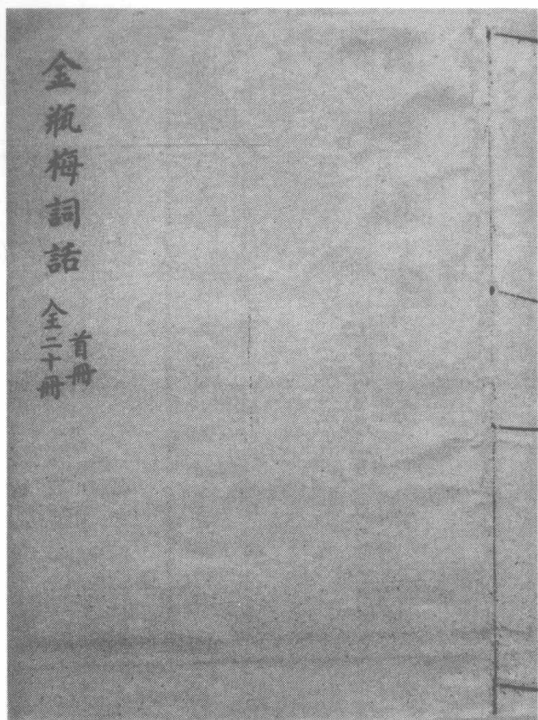 金瓶梅詞話
首冊
全二十冊